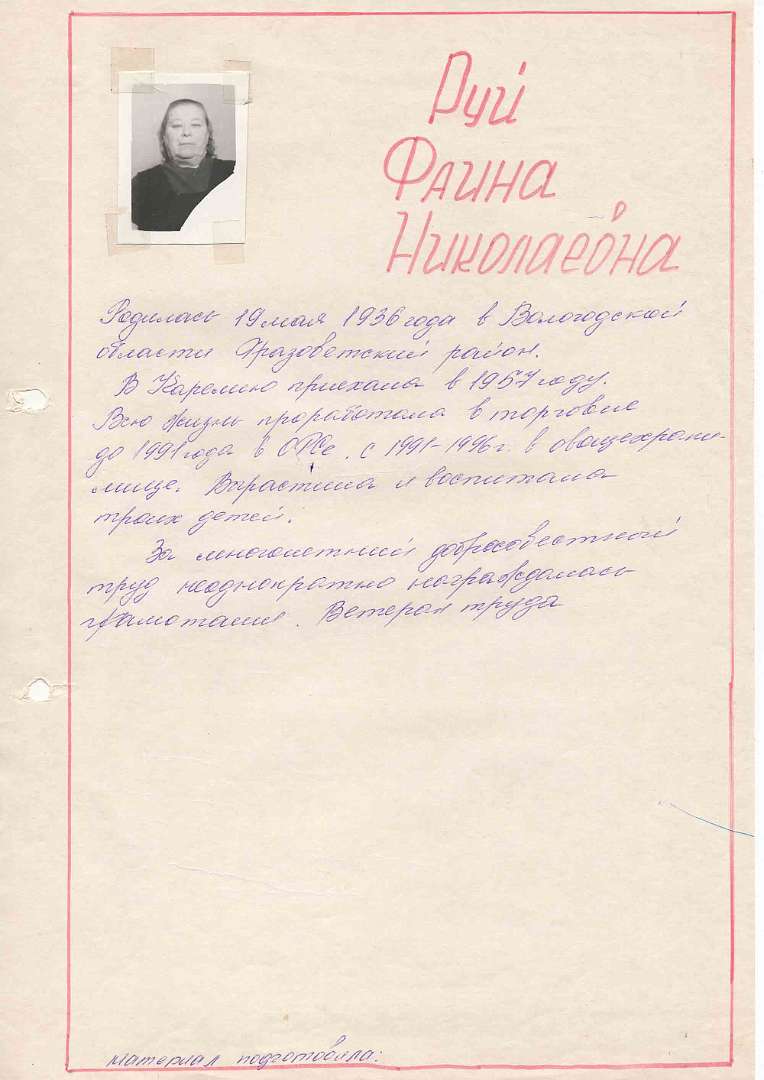 Руй
Фаина
Николаевна
Родилась 19 мая 1936 года в Вологодской
области район.
В Карелию приехала в 1957 году.
Всю жизнь проработала в торговле
до 1991 года в ОРСе. с 1991-1996 г. в овощехрани-
лище. Вырастила и воспитала
троих детей.
За многолетний добросовестный
труд неоднократно награждалась
грамотами. Ветеран труда
материал подготовила: